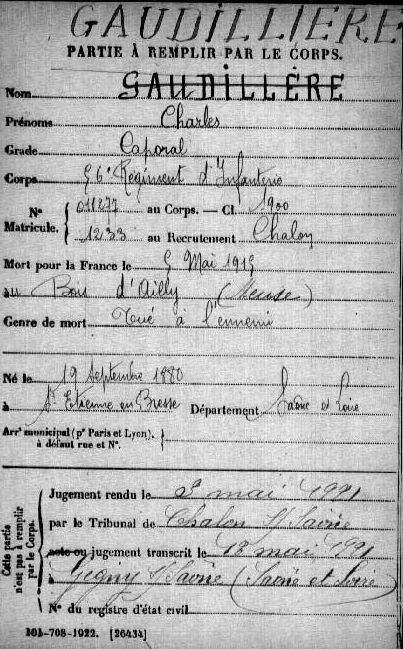 GAUDILLIERE
PARTIE À REMPLIR PAR LE CORPS.
Nom GAUDILLÈRE
Prénoms Charles
Grade Caporal
Corps 56e Régiment d'Infanterie
Nº 011277 au Corps. — Cl. 1900
Matricule. 1233 au Recrutement Chalon
Mort pour la France le 5 Mai 1915
au Bois d'Ailly (Meuse)
Genre de mort Tué à l'ennemi
Né le 19 Septembre 1880
à St Etienne en Bresse Département Saône et Loire
Arrt municipal (pr Paris et Lyon),
à défaut rue et Nº.
Cette partie
n'est pas à remplir
par le Corps.
Jugement rendu le 3 mai 1921
par le Tribunal de Chalon s/ Saône
acte ou jugement transcrit le 18 mai 1921
à Gigny s/ Saône (Saône et Loire)
Nº du registre d'état civil
101-708-1922. [26434]